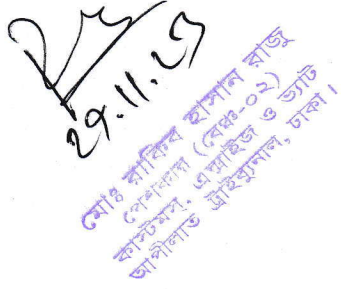 29.11.23
মোঃ রাকিব হাসান রাজু
পেশকার (বেঞ্চ-০২)
কাস্টমস, এক্সাইজ ও ভ্যাট
আপীলাত ট্রাইব্যুনাল, ঢাকা।